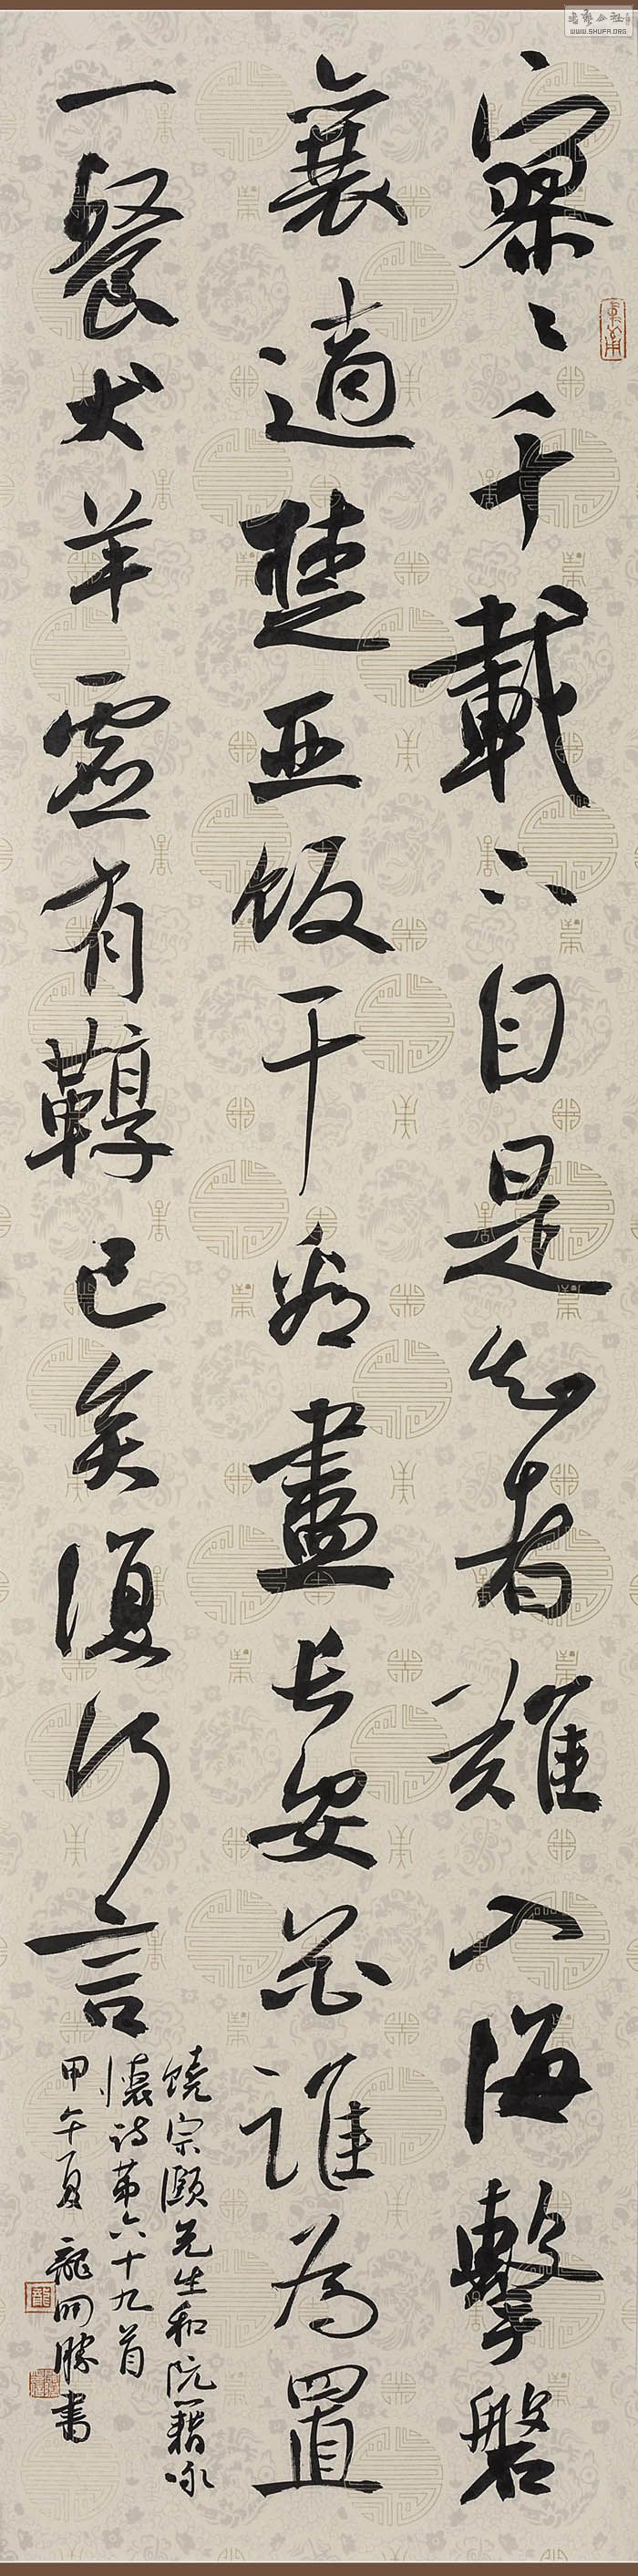 寥〻千載下自是知者難入海擊磬
襄適楚亞飯干看盡長安花誰為置
一餐犬羊虛有鞟已矣復何言
饒宗頤先生和阮籍咏
懷詩第六十九首
甲午夏 龍開勝書
WWW.SHUFA.ORG